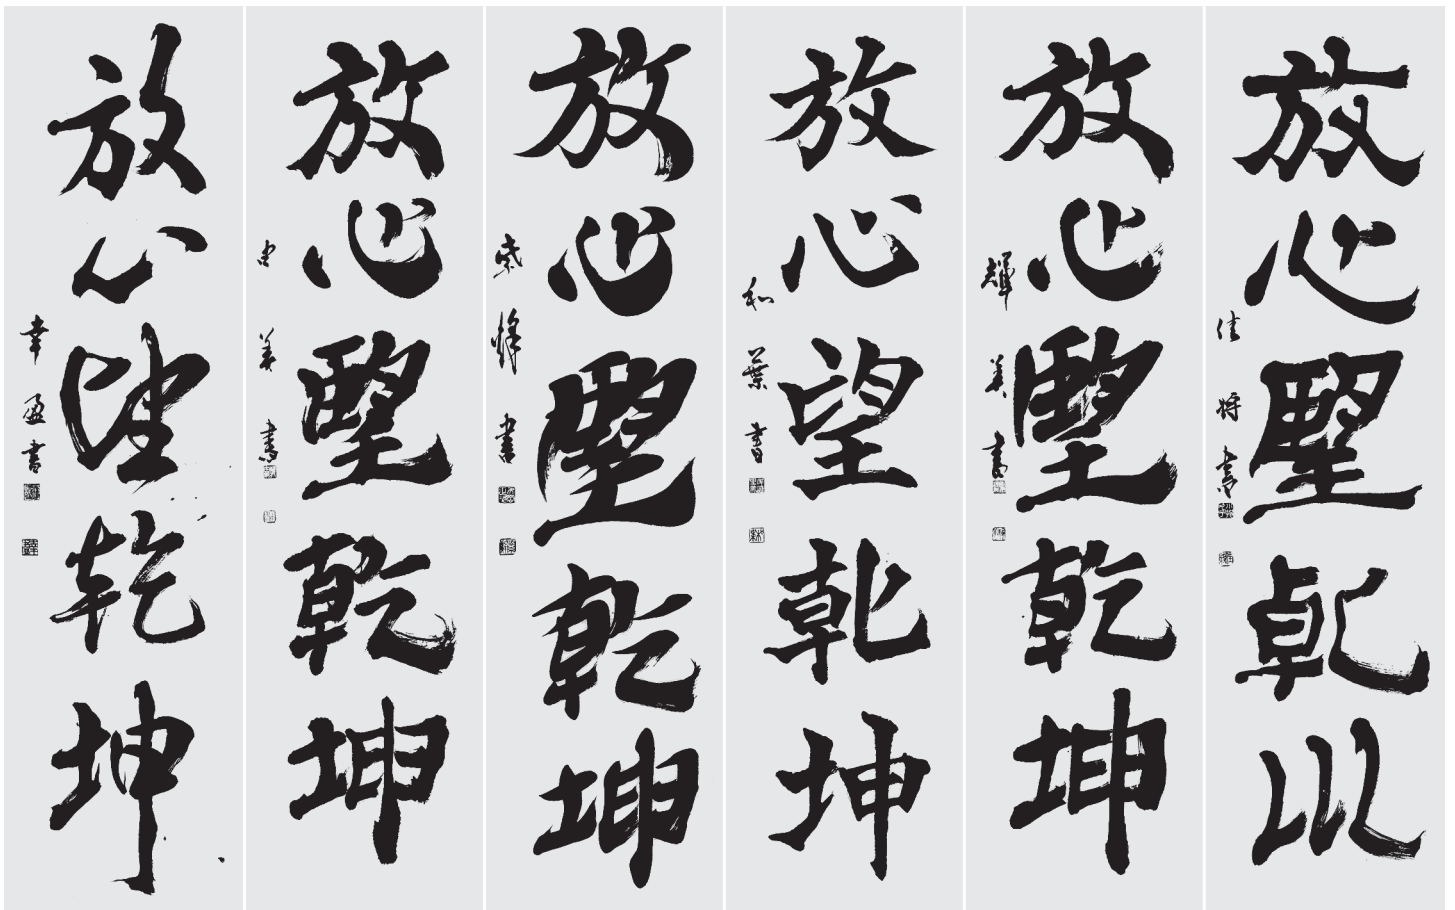 放心望乾巛
佳将書
放心望乾坤
輝美書
放心望乾坤
和葉書
放心望乾坤
紫 書
放心望乾坤
美書
放心望乾坤
幸盈書